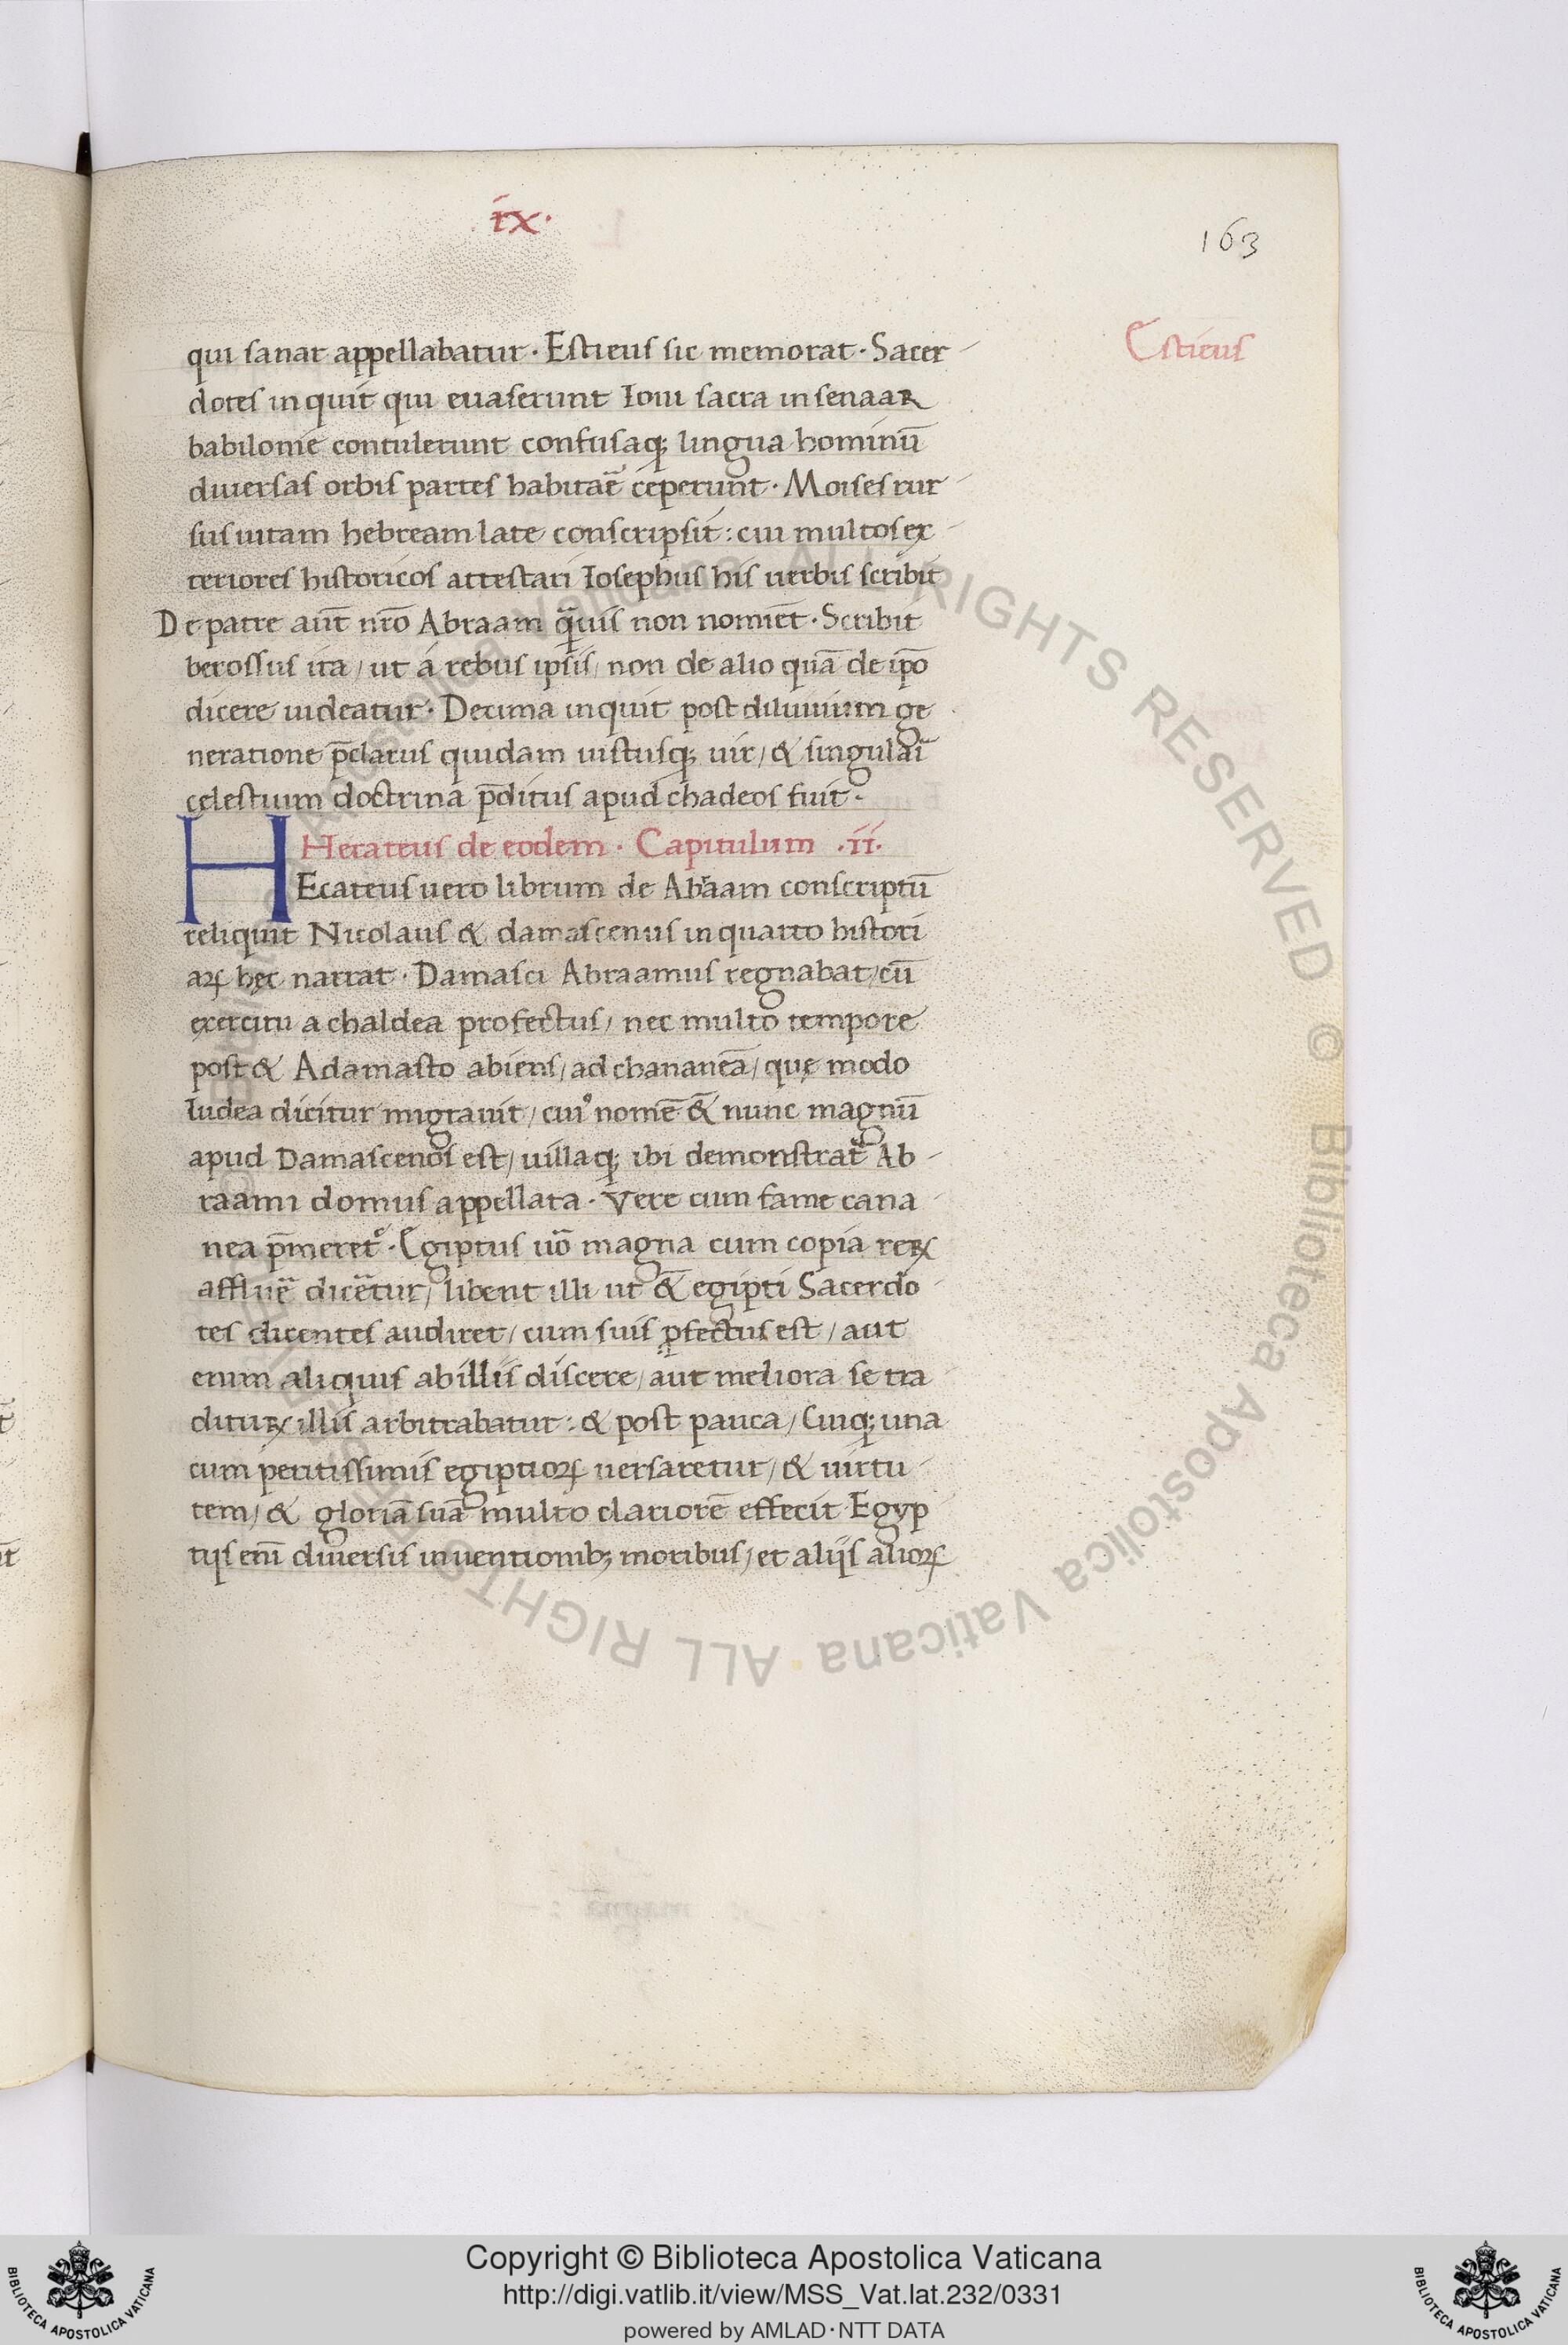 ix·
163
qui sanat appellabatur · Estieus sic memorat · Sacer-
Estieus
dotes inquit qui euaserunt Ioui sacra in senaar
babilonie contulerunt confusaq; lingua hominū
diuersas orbis partes habitar̄ ceperunt · Moises rur-
sus uitam hebream late conscripsit : cui multos ex-
teriores historicos attestari Iosephus his uerbis scribit
De patre aūt nr̄o Abraam q̄uis non nomiēt · Scribit
berossus ita / ut á rebus ipsis / non de alio quā de ip̄o
dicere uideatur · Decima inquit post diluuium ge
neratione p̄clarus quidam uistusq; uir / & singulai᷑
cęlestium doctrina p̄ditus apud chadeos fuit ·
Hecateus de eodem · Capitulum ·ii·
HEcateus uero librum de Abᵃaam conscriptū
reliquit Nicolaus & damascenus in quarto histori
aꝝ hęc narrat · Damasci Abraamus regnabat / cū
exercitu a chaldea profectus / nec multo tempore
post & Adamasto abiens / ad chananeā / quę modo
Iudea dicitur migrauit / cuiꝰ nomē & nunc magnū
apud Damascenos est / uillaq; ibi demonstrat᷑ Ab-
raami domus appellata · Vere cum fame cana-
nea p̄meret᷑ · Egiptus uō magna cum copia reꝝ
affluē᷑ dicē᷑tur / libent illi ut & egipti Sacerdo-
tes dicentes audiret / cum suis ꝓfectus est / aut
enim aliquis ab illis discere / aut meliora se tra
dituꝝ illis arbitrabatur : & post pauca / Cuiq; una
cum peritissimis egiptioꝝ uersaretur / & uirtu-
tem / & gloriā suā multo clariorē effecit Egyp
tijs eni᷑ diuersis inuentionib; moribus / et alijs alioꝝ
© Biblioteca Apostolica Vaticana · ALL RIGHTS RESERVED
© Biblioteca Apostolica Vaticana · ALL RIGHTS RESERVED
Copyright © Biblioteca Apostolica Vaticana
http://digi.vatlib.it/view/MSS_Vat.lat.232/0331
powered by AMLAD·NTT DATA
BIBLIOTECA APOSTOLICA VATICANA
BIBLIOTECA APOSTOLICA VATICANA